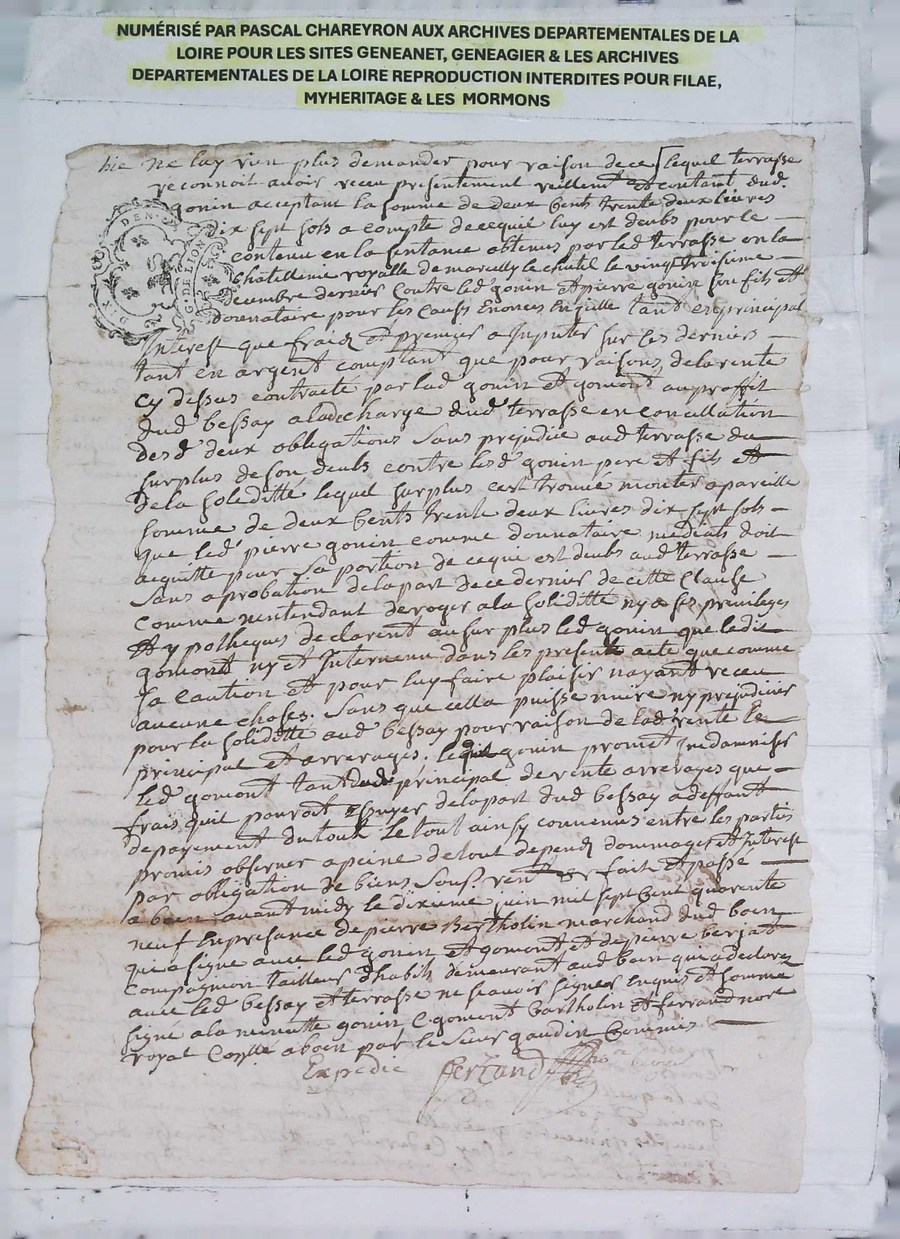 NUMÉRISÉ PAR PASCAL CHAREYRON AUX ARCHIVES DEPARTEMENTALES DE LA
LOIRE POUR LES SITES GENEANET, GENEAGIER & LES ARCHIVES
DEPARTEMENTALES DE LA LOIRE REPRODUCTION INTERDITES POUR FILAE,
MYHERITAGE & LES MORMONS
ne luy rien plus demander pour raison de ce lequel terrasse
reconnoit avoir receu presentement reellemt et contant dud.
gonin acceptant la somme de deux Cents trente deux livres
dix sept sols a compte de cequil luy est deubs pour le
contenu en la sentance obtenue par led terrasse en la
Chatellenie royalle de marcilly le chatel le vingt troisieme
decembre dernier contre led gonin et pierre gonin son fils et
donnataire pour les causes Enoncés En jcelle tant en principal
Interest que fraix et premier a Inputer sur les derniers
tant en argent comptant que pour raisons de la rente
cy dessus contraite par led gonin et gomont au proffit
dud bessay a la decharge dud terrasse en concillation
des d deux obligations sans prejudice aud terrasse du
surplus de son deubs contre lesd gonin pere et fils et
de la soliditté lequel surplus cest trouvé monter a pareille
somme de deux Cents trente deux livres dix sept sols
que led pierre gonin comme donnataire médiats doit
acquitte pour sa portion de ceque est deubs aud terrasse
sans aprobation de la part de ce dernier de cette Clause
comme nentendant deroger a la soliditté ny a ses privileges
Et ypotheques declarent au sur plus led gonin que ledit
gomont ny et Intervenu dans les presente acte que comme
sa caution et pour luy faire plaisir nayant receu
aucune choses. Sans que cella puisse nuire ny prejudicier
pour la soliditté aud bessay pour raison de lad rente le
principal et arrerages. lequel gonin promet Indamniser
led gomont tant du principal de rente arrerages que
frais quil pouroit Essuyer de la part dud bessay a deffaut
de payement du tout le tout ainsy convenus entre les parties
promis observer a peine de tout depend dommages et Interest
par obligation de biens sous. rent fait et passe
a boen avant midy le dixieme juin mil sept Cent quarente
neuf En presance de pierre Bertholin marchand dud boen
qui a signé avec led gonin et gomont et de pierre berjat
Compagnon tailleur dhabits demeurant aud boen qui a declaré
avec led bessay et terrasse ne scavoir signer Enquis et sommé
signé a la minutte gonin C. gomont Bartholin et ferrand nore
royal Controllé a boen par le Sieur gaudin Commis
Expedie ferrand